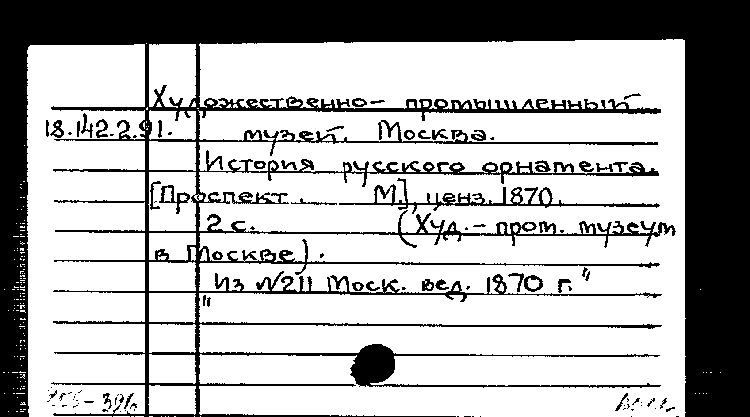 Художественно- промышленный
18.142.2.91. музей. Москва.
История русского орнамента.
[Проспект. М.], ценз. 1870.
2 с. (Худ.- пром. музеум
в Москве).
"Из №211 Моск. вед. 1870 г."